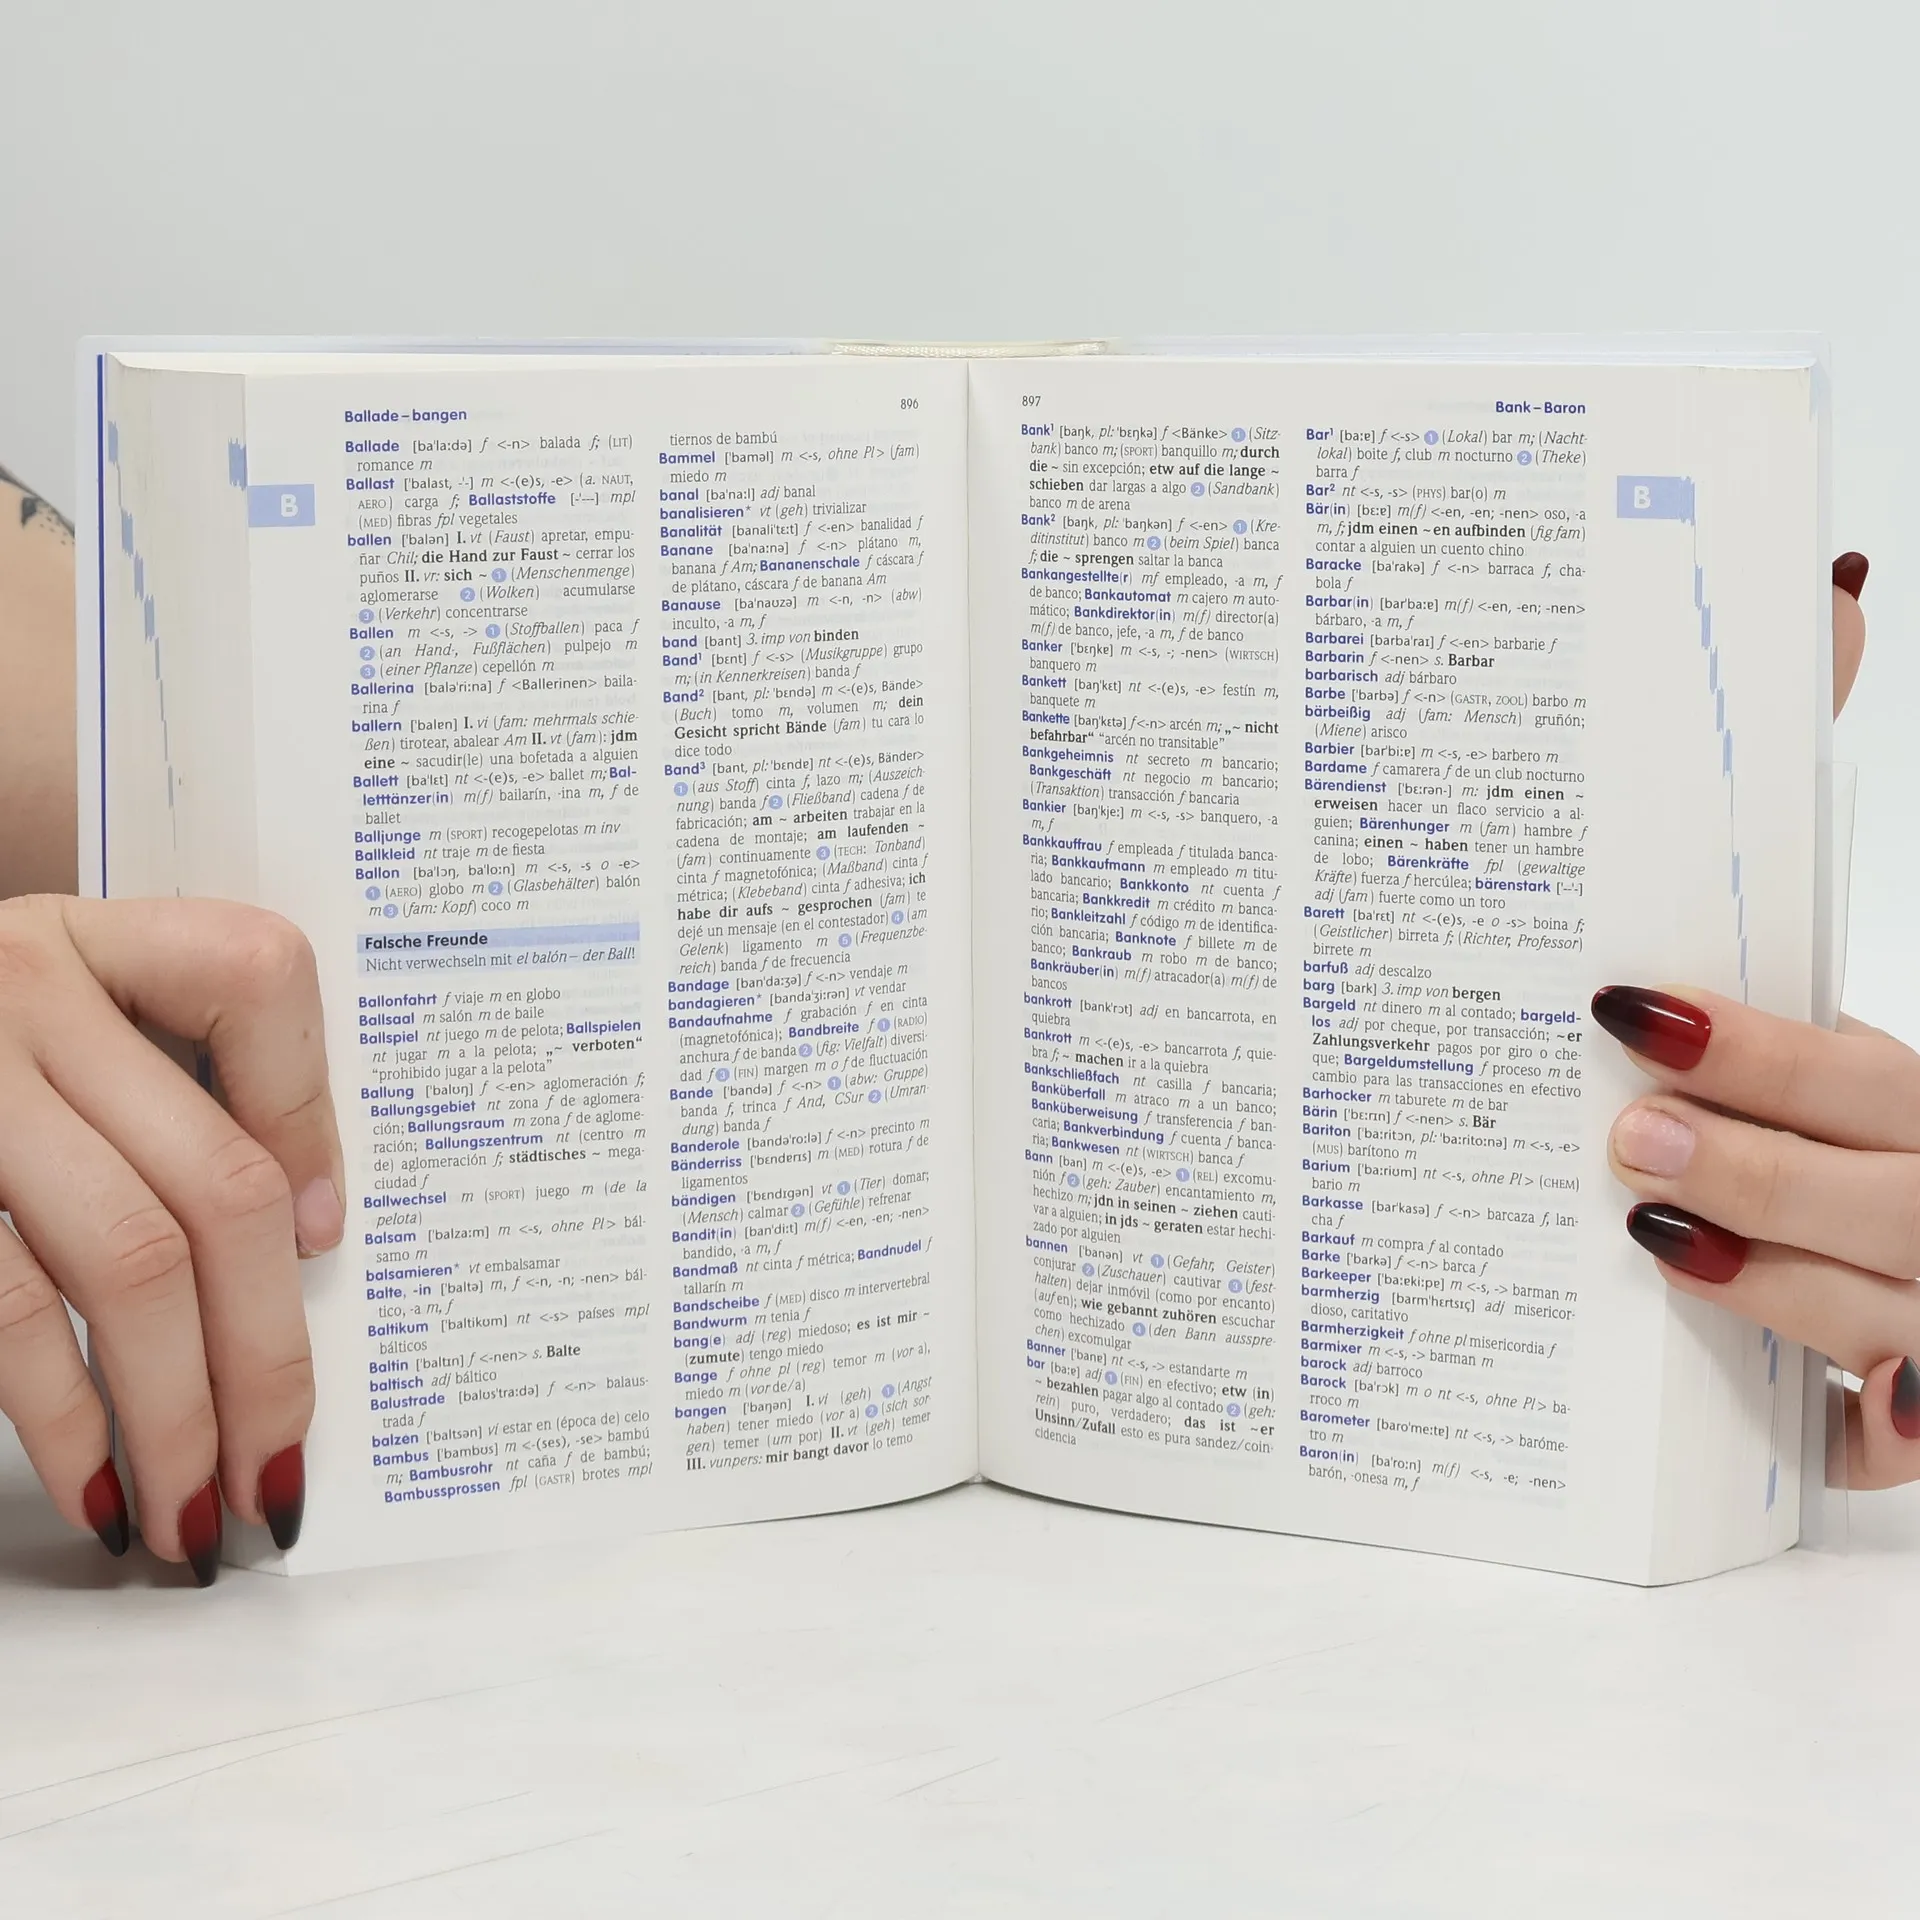 Ballade – bangen
896
B
Ballade [ba'la:də] f <-n> balada f; (LIT)
romance m
Ballast ['balast, -'-] m <-(e)s, -e> (a. NAUT,
AERO) carga f; Ballaststoffe [-'---] mpl
(MED) fibras fpl vegetales
ballen ['balən] I. vt (Faust) apretar, empu-
ñar Chil; die Hand zur Faust ~ cerrar los
puños II. vr: sich ~ 1 (Menschenmenge)
aglomerarse 2 (Wolken) acumularse
3 (Verkehr) concentrarse
Ballen m <-s, -> 1 (Stoffballen) paca f
2 (an Hand-, Fußflächen) pulpejo m
3 (einer Pflanze) cepellón m
Ballerina [balə'ri:na] f <Ballerinen> baila-
rina f
ballern ['balɐn] I. vi (fam: mehrmals schie-
ßen) tirotear, abalear Am II. vt (fam): jdm
eine ~ sacudir(le) una bofetada a alguien
Ballett [ba'lɛt] nt <-(e)s, -e> ballet m; Bal-
letttänzer(in) m(f) bailarín, -ina m, f de
ballet
Balljunge m (SPORT) recogepelotas m inv
Ballkleid nt traje m de fiesta
Ballon [ba'lɔŋ, ba'lo:n] m <-s, -s o -e>
1 (AERO) globo m 2 (Glasbehälter) balón
m 3 (fam: Kopf) coco m
Falsche Freunde
Nicht verwechseln mit el balón – der Ball!
Ballonfahrt f viaje m en globo
Ballsaal m salón m de baile
Ballspiel nt juego m de pelota; Ballspielen
nt jugar m a la pelota; „~ verboten“
“prohibido jugar a la pelota”
Ballung ['balʊŋ] f <-en> aglomeración f;
Ballungsgebiet nt zona f de aglomera-
ción; Ballungsraum m zona f de aglome-
ración; Ballungszentrum nt (centro m
de) aglomeración f; städtisches ~ mega-
ciudad f
Ballwechsel m (SPORT) juego m (de la
pelota)
Balsam ['balza:m] m <-s, ohne Pl> bál-
samo m
balsamieren* vt embalsamar
Balte, -in ['baltə] m, f <-n, -n; -nen> bál-
tico, -a m, f
Baltikum ['baltikʊm] nt <-s> países mpl
bálticos
Baltin ['baltɪn] f <-nen> s. Balte
baltisch adj báltico
Balustrade [balʊs'tra:də] f <-n> balaus-
trada f
balzen ['baltsən] vi estar en (época de) celo
Bambus ['bambʊs] m <-(ses), -se> bambú
m; Bambusrohr nt caña f de bambú;
Bambussprossen fpl (GASTR) brotes mpl
tiernos de bambú
Bammel ['baməl] m <-s, ohne Pl> (fam)
miedo m
banal [ba'na:l] adj banal
banalisieren* vt (geh) trivializar
Banalität [banali'tɛ:t] f <-en> banalidad f
Banane [ba'na:nə] f <-n> plátano m,
banana f Am; Bananenschale f cáscara f
de plátano, cáscara f de banana Am
Banause [ba'naʊzə] m <-n, -n> (abw)
inculto, -a m, f
band [bant] 3. imp von binden
Band¹ [bɛnt] f <-s> (Musikgruppe) grupo
m; (in Kennerkreisen) banda f
Band² [bant, pl: 'bɛndə] m <-(e)s, Bände>
(Buch) tomo m, volumen m; dein
Gesicht spricht Bände (fam) tu cara lo
dice todo
Band³ [bant, pl: 'bɛndɐ] nt <-(e)s, Bänder>
1 (aus Stoff) cinta f, lazo m; (Auszeich-
nung) banda f 2 (Fließband) cadena f de
fabricación; am ~ arbeiten trabajar en la
cadena de montaje; am laufenden ~
(fam) continuamente 3 (TECH: Tonband)
cinta f magnetofónica; (Maßband) cinta f
métrica; (Klebeband) cinta f adhesiva; ich
habe dir aufs ~ gesprochen (fam) te
dejé un mensaje (en el contestador) 4 (am
Gelenk) ligamento m 5 (Frequenzbe-
reich) banda f de frecuencia
Bandage [ban'da:ʒə] f <-n> vendaje m
bandagieren* [banda'ʒi:rən] vt vendar
Bandaufnahme f grabación f en cinta
(magnetofónica); Bandbreite f 1 (RADIO)
anchura f de banda 2 (fig: Vielfalt) diversi-
dad f 3 (FIN) margen m o f de fluctuación
Bande ['bandə] f <-n> 1 (abw: Gruppe)
banda f, trinca f And, CSur 2 (Umran-
dung) banda f
Banderole [bandə'ro:lə] f <-n> precinto m
Bänderriss ['bɛndɐrɪs] m (MED) rotura f de
ligamentos
bändigen ['bɛndɪgən] vt 1 (Tier) domar;
(Mensch) calmar 2 (Gefühle) refrenar
Bandit(in) [ban'di:t] m(f) <-en, -en; -nen>
bandido, -a m, f
Bandmaß nt cinta f métrica; Bandnudel f
tallarín m
Bandscheibe f (MED) disco m intervertebral
Bandwurm m tenia f
bang(e) adj (reg) miedoso; es ist mir ~
(zumute) tengo miedo
Bange f ohne pl (reg) temor m (vor a),
miedo m (vor de/a)
bangen ['baŋən] I. vi (geh) 1 (Angst
haben) tener miedo (vor a) 2 (sich sor-
gen) temer (um por) II. vt (geh) temer
III. vunpers: mir bangt davor lo temo
897
Bank – Baron
B
Bank¹ [baŋk, pl: 'bɛŋkə] f <Bänke> 1 (Sitz-
bank) banco m; (SPORT) banquillo m; durch
die ~ sin excepción; etw auf die lange ~
schieben dar largas a algo 2 (Sandbank)
banco m de arena
Bank² [baŋk, pl: 'baŋkən] f <-en> 1 (Kre-
ditinstitut) banco m 2 (beim Spiel) banca
f; die ~ sprengen saltar la banca
Bankangestellte(r) mf empleado, -a m, f
de banco; Bankautomat m cajero m auto-
mático; Bankdirektor(in) m(f) director(a)
m(f) de banco, jefe, -a m, f de banco
Banker ['bɛŋkɐ] m <-s, -; -nen> (WIRTSCH)
banquero m
Bankett [baŋ'kɛt] nt <-(e)s, -e> festín m,
banquete m
Bankette [baŋ'kɛtə] f <-n> arcén m; „~ nicht
befahrbar“ “arcén no transitable”
Bankgeheimnis nt secreto m bancario;
Bankgeschäft nt negocio m bancario;
(Transaktion) transacción f bancaria
Bankier [baŋ'kje:] m <-s, -s> banquero, -a
m, f
Bankkauffrau f empleada f titulada banca-
ria; Bankkaufmann m empleado m titu-
lado bancario; Bankkonto nt cuenta f
bancaria; Bankkredit m crédito m banca-
rio; Bankleitzahl f código m de identifica-
ción bancaria; Banknote f billete m de
banco; Bankraub m robo m de banco;
Bankräuber(in) m(f) atracador(a) m(f) de
bancos
bankrott [bank'rɔt] adj en bancarrota, en
quiebra
Bankrott m <-(e)s, -e> bancarrota f, quie-
bra f; ~ machen ir a la quiebra
Bankschließfach nt casilla f bancaria;
Banküberfall m atraco m a un banco;
Banküberweisung f transferencia f ban-
caria; Bankverbindung f cuenta f banca-
ria; Bankwesen nt (WIRTSCH) banca f
Bann [ban] m <-(e)s, -e> 1 (REL) excomu-
nión f 2 (geh: Zauber) encantamiento m,
hechizo m; jdn in seinen ~ ziehen cauti-
var a alguien; in jds ~ geraten estar hechi-
zado por alguien
bannen ['banən] vt 1 (Gefahr, Geister)
conjurar 2 (Zuschauer) cautivar 3 (fest-
halten) dejar inmóvil (como por encanto)
(auf en); wie gebannt zuhören escuchar
como hechizado 4 (den Bann ausspre-
chen) excomulgar
Banner ['banɐ] nt <-s, -> estandarte m
bar [ba:ɐ] adj 1 (FIN) en efectivo; etw (in)
~ bezahlen pagar algo al contado 2 (geh:
rein) puro, verdadero; das ist ~er
Unsinn/Zufall esto es pura sandez/coin-
cidencia
Bar¹ [ba:ɐ] f <-s> 1 (Lokal) bar m; (Nacht-
lokal) boite f, club m nocturno 2 (Theke)
barra f
Bar² nt <-s, -s> (PHYS) bar(o) m
Bär(in) [bɛ:ɐ] m(f) <-en, -en; -nen> oso, -a
m, f; jdm einen ~en aufbinden (fig fam)
contar a alguien un cuento chino
Baracke [ba'rakə] f <-n> barraca f, cha-
bola f
Barbar(in) [bar'ba:ɐ] m(f) <-en, -en; -nen>
bárbaro, -a m, f
Barbarei [barba'raɪ] f <-en> barbarie f
Barbarin f <-nen> s. Barbar
barbarisch adj bárbaro
Barbe ['barbə] f <-n> (GASTR, ZOOL) barbo m
bärbeißig adj (fam: Mensch) gruñón;
(Miene) arisco
Barbier [bar'bi:ɐ] m <-s, -e> barbero m
Bardame f camarera f de un club nocturno
Bärendienst ['bɛ:rən-] m: jdm einen ~
erweisen hacer un flaco servicio a al-
guien; Bärenhunger m (fam) hambre f
canina; einen ~ haben tener un hambre
de lobo; Bärenkräfte fpl (gewaltige
Kräfte) fuerza f hercúlea; bärenstark ['--'-]
adj (fam) fuerte como un toro
Barett [ba'rɛt] nt <-(e)s, -e o -s> boina f;
(Geistlicher) birreta f; (Richter, Professor)
birrete m
barfuß adj descalzo
barg [bark] 3. imp von bergen
Bargeld nt dinero m al contado; bargeld-
los adj por cheque, por transacción; ~er
Zahlungsverkehr pagos por giro o che-
que; Bargeldumstellung f proceso m de
cambio para las transacciones en efectivo
Barhocker m taburete m de bar
Bärin ['bɛ:rɪn] f <-nen> s. Bär
Bariton ['ba:ritɔn, pl: 'ba:rito:nə] m <-s, -e>
(MUS) barítono m
Barium ['ba:riʊm] nt <-s, ohne Pl> (CHEM)
bario m
Barkasse [bar'kasə] f <-n> barcaza f, lan-
cha f
Barkauf m compra f al contado
Barke ['barkə] f <-n> barca f
Barkeeper ['ba:ɐki:pɐ] m <-s, -> barman m
barmherzig [barm'hɛrtsɪç] adj misericor-
dioso, caritativo
Barmherzigkeit f ohne pl misericordia f
Barmixer m <-s, -> barman m
barock adj barroco
Barock [ba'rɔk] m o nt <-s, ohne Pl> ba-
rroco m
Barometer [baro'me:tɐ] nt <-s, -> baróme-
tro m
Baron(in) [ba'ro:n] m(f) <-s, -e; -nen>
barón, -onesa m, f